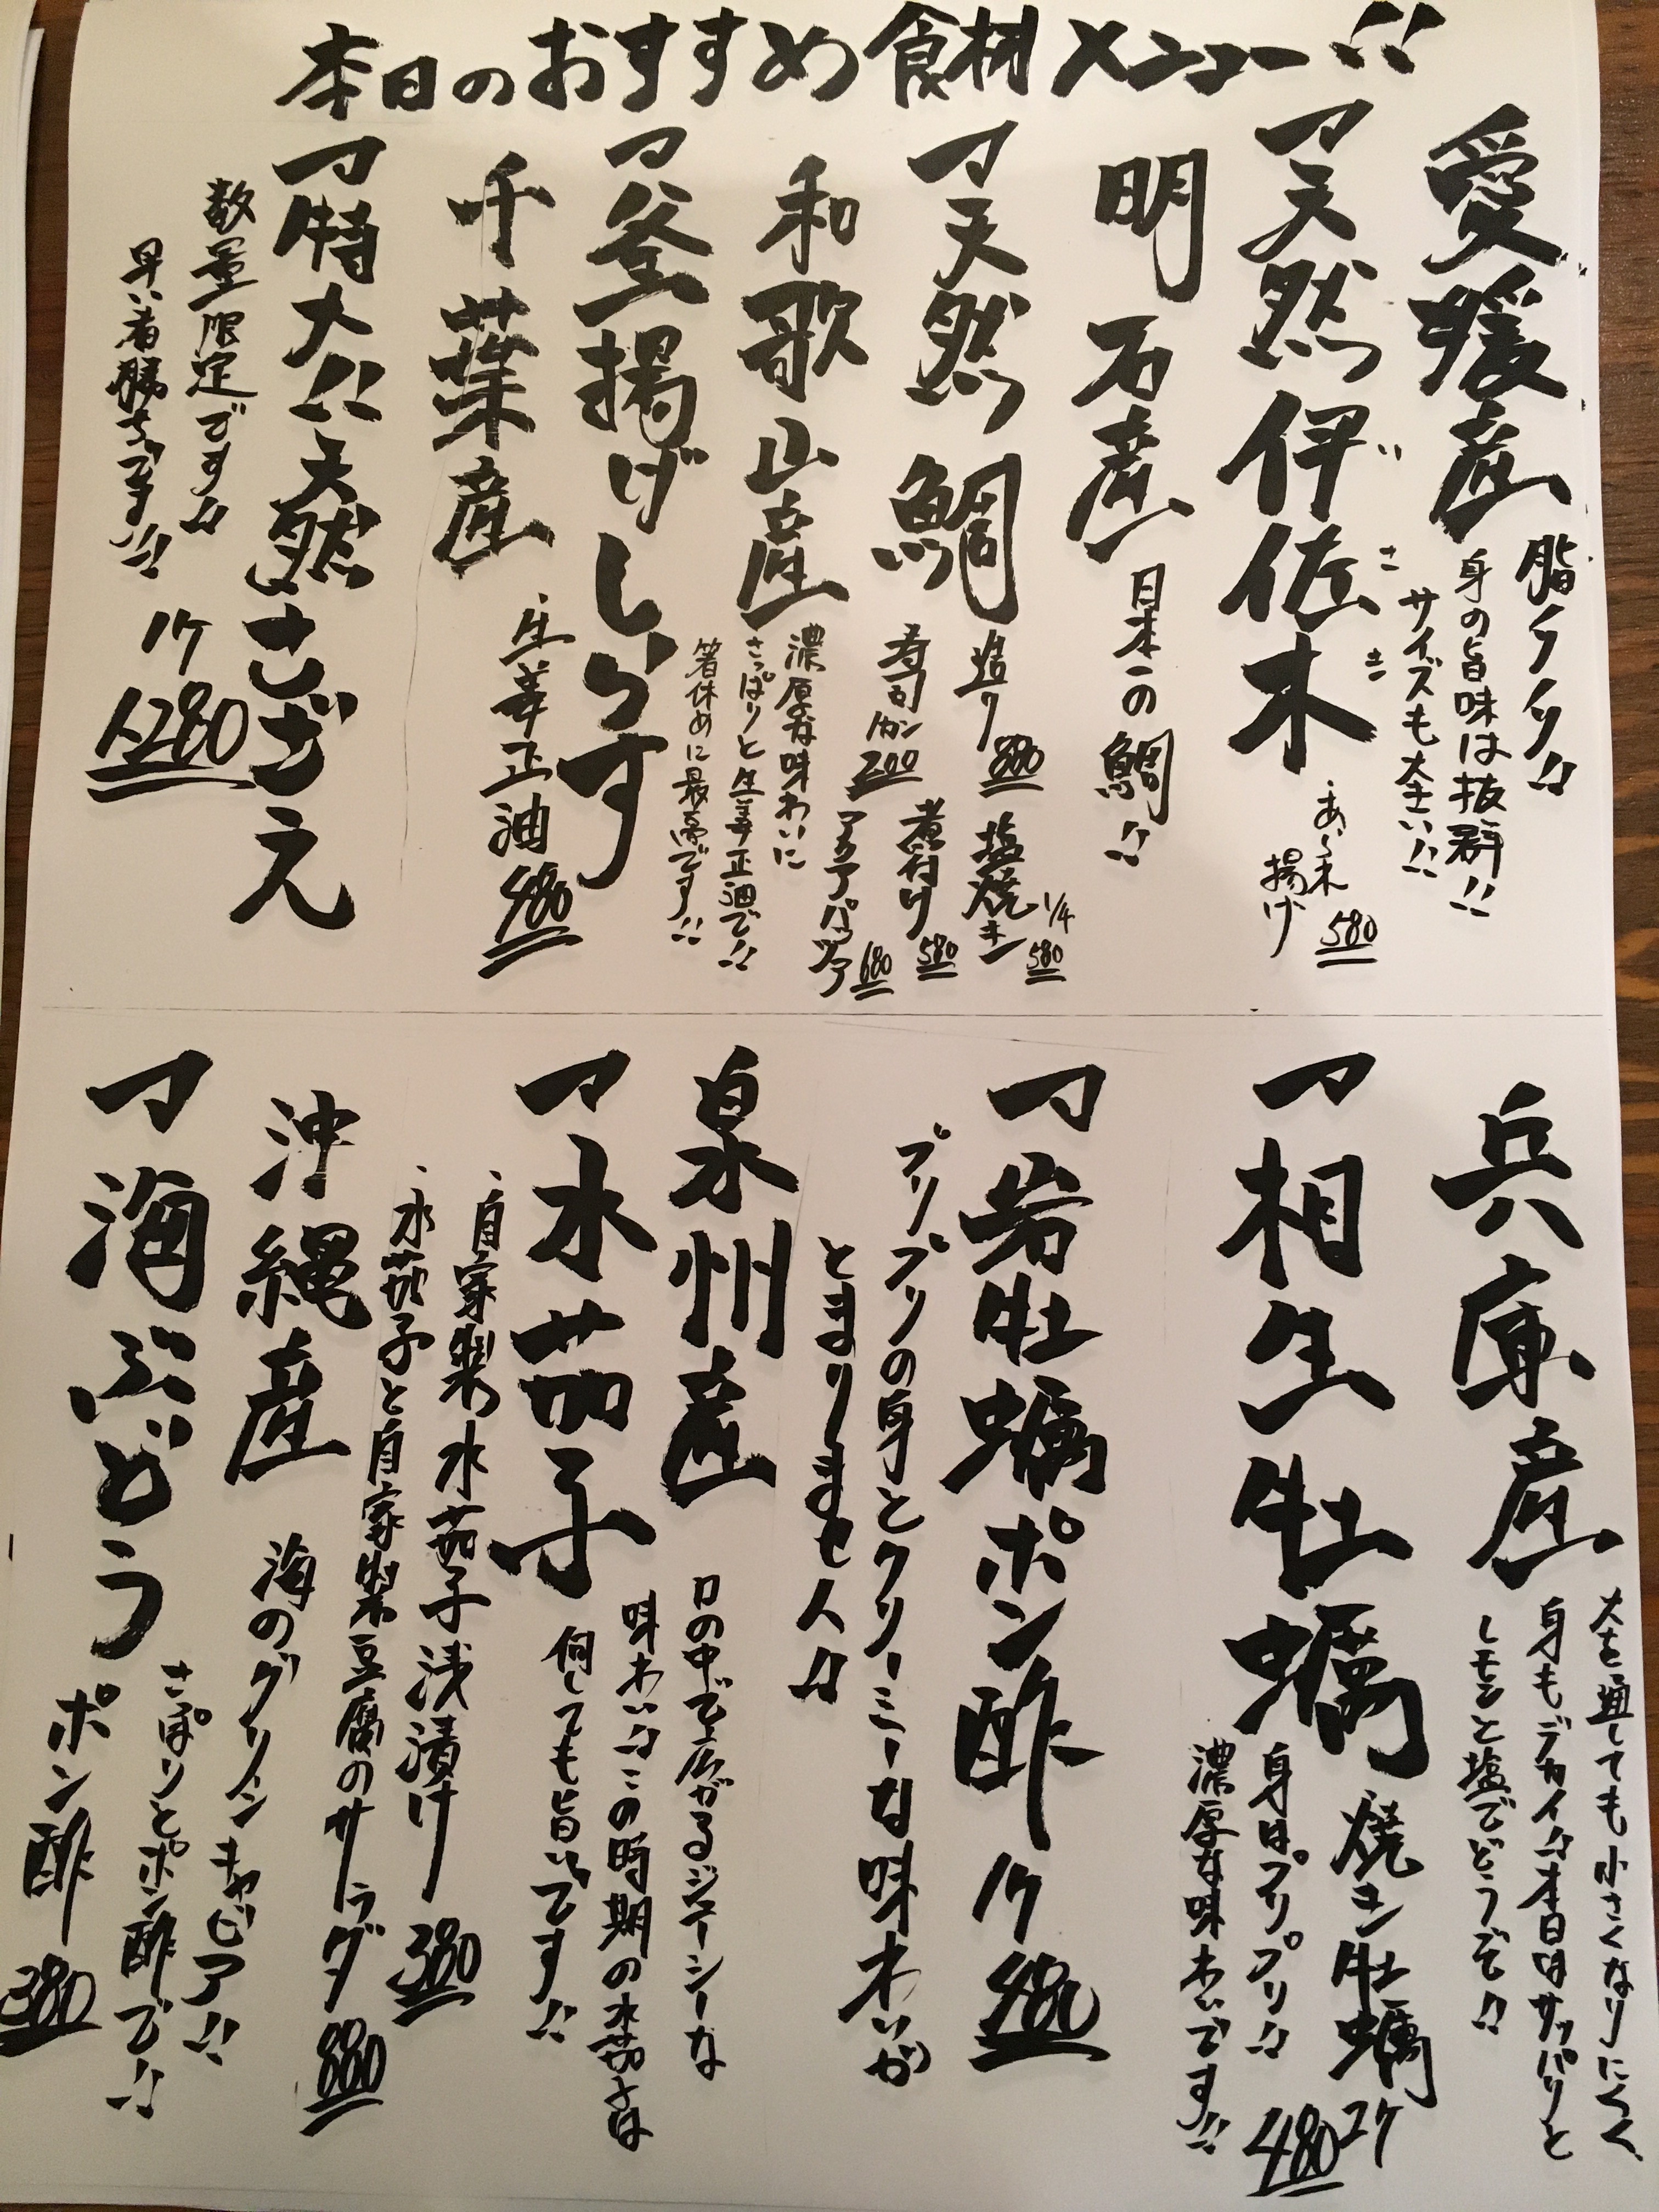 本日のおすすめ食材メニュー!!
愛媛産
脂ノリノリ!!
身の旨味は抜群!!
サイズも大きい!!
▽天然伊佐木
いさき
・あられ揚げ 580
明石産
日本一の鯛!!
▽天然鯛
造り 880
塩焼き 1/4 580
寿司1カン 200
煮付け 580
アクアパッツア 680
和歌山産
濃厚な味わいに
さっぱりと生姜正油で!!
箸休めに最高です!!
▽釜揚げしらす
・生姜正油 480
千葉産
▽特大!!天然さざえ
数量限定です!!
早い者勝ちです!!
1ケ 1280
兵庫産
火を通しても小さくなりにくく、
身もデカイ!!本日はサッパリと
レモンと塩でどうぞ!!
▽相生牡蠣
焼き牡蠣 2ケ 480
身はプリプリ!!
濃厚な味わいです!!
▽岩牡蠣ポン酢 1ケ 480
プリプリの身とクリーミーな味わいが
とまりません!!
泉州産
口の中で広がるジューシーな
味わい!!この時期の水茄子は
何しても旨いです!!
▽水茄子
・自家製水茄子浅漬け 380
・水茄子と自家製豆腐のサラダ 880
沖縄産
海のグリーンキャビア!!
さっぱりとポン酢で!!
▽海ぶどう
ポン酢 380